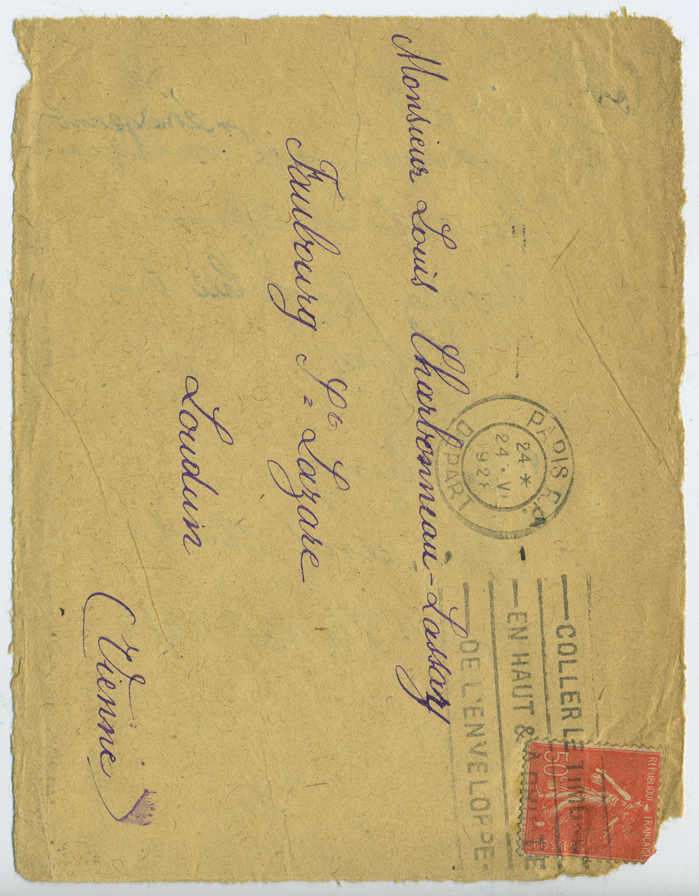 Monsieur Louis Charbonneau-Lassay
Faubourg St= Lazare
Loudun
(Vienne)
PARIS R.P.
24 *
24 · VI
192
DEPART
COLLER LE TIMBRE
EN HAUT & A DROITE
DE L'ENVELOPPE
RÉPUBLIQUE FRANÇAISE
50c
POSTES